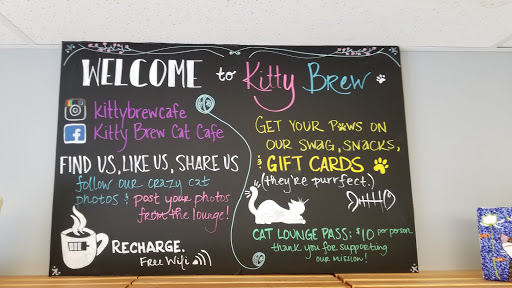 WELCOME to Kitty Brew
kittybrewcafe
Kitty Brew Cat Cafe
FIND US, LIKE US, SHARE US
follow our crazy cat
photos & post your photos
from the lounge!
RECHARGE.
Free Wifi
GET YOUR PAWS ON
OUR SWAG, SNACKS,
& GIFT CARDS
(they're purrfect.)
CAT LOUNGE PASS: $10 per person
thank you for supporting
our mission!